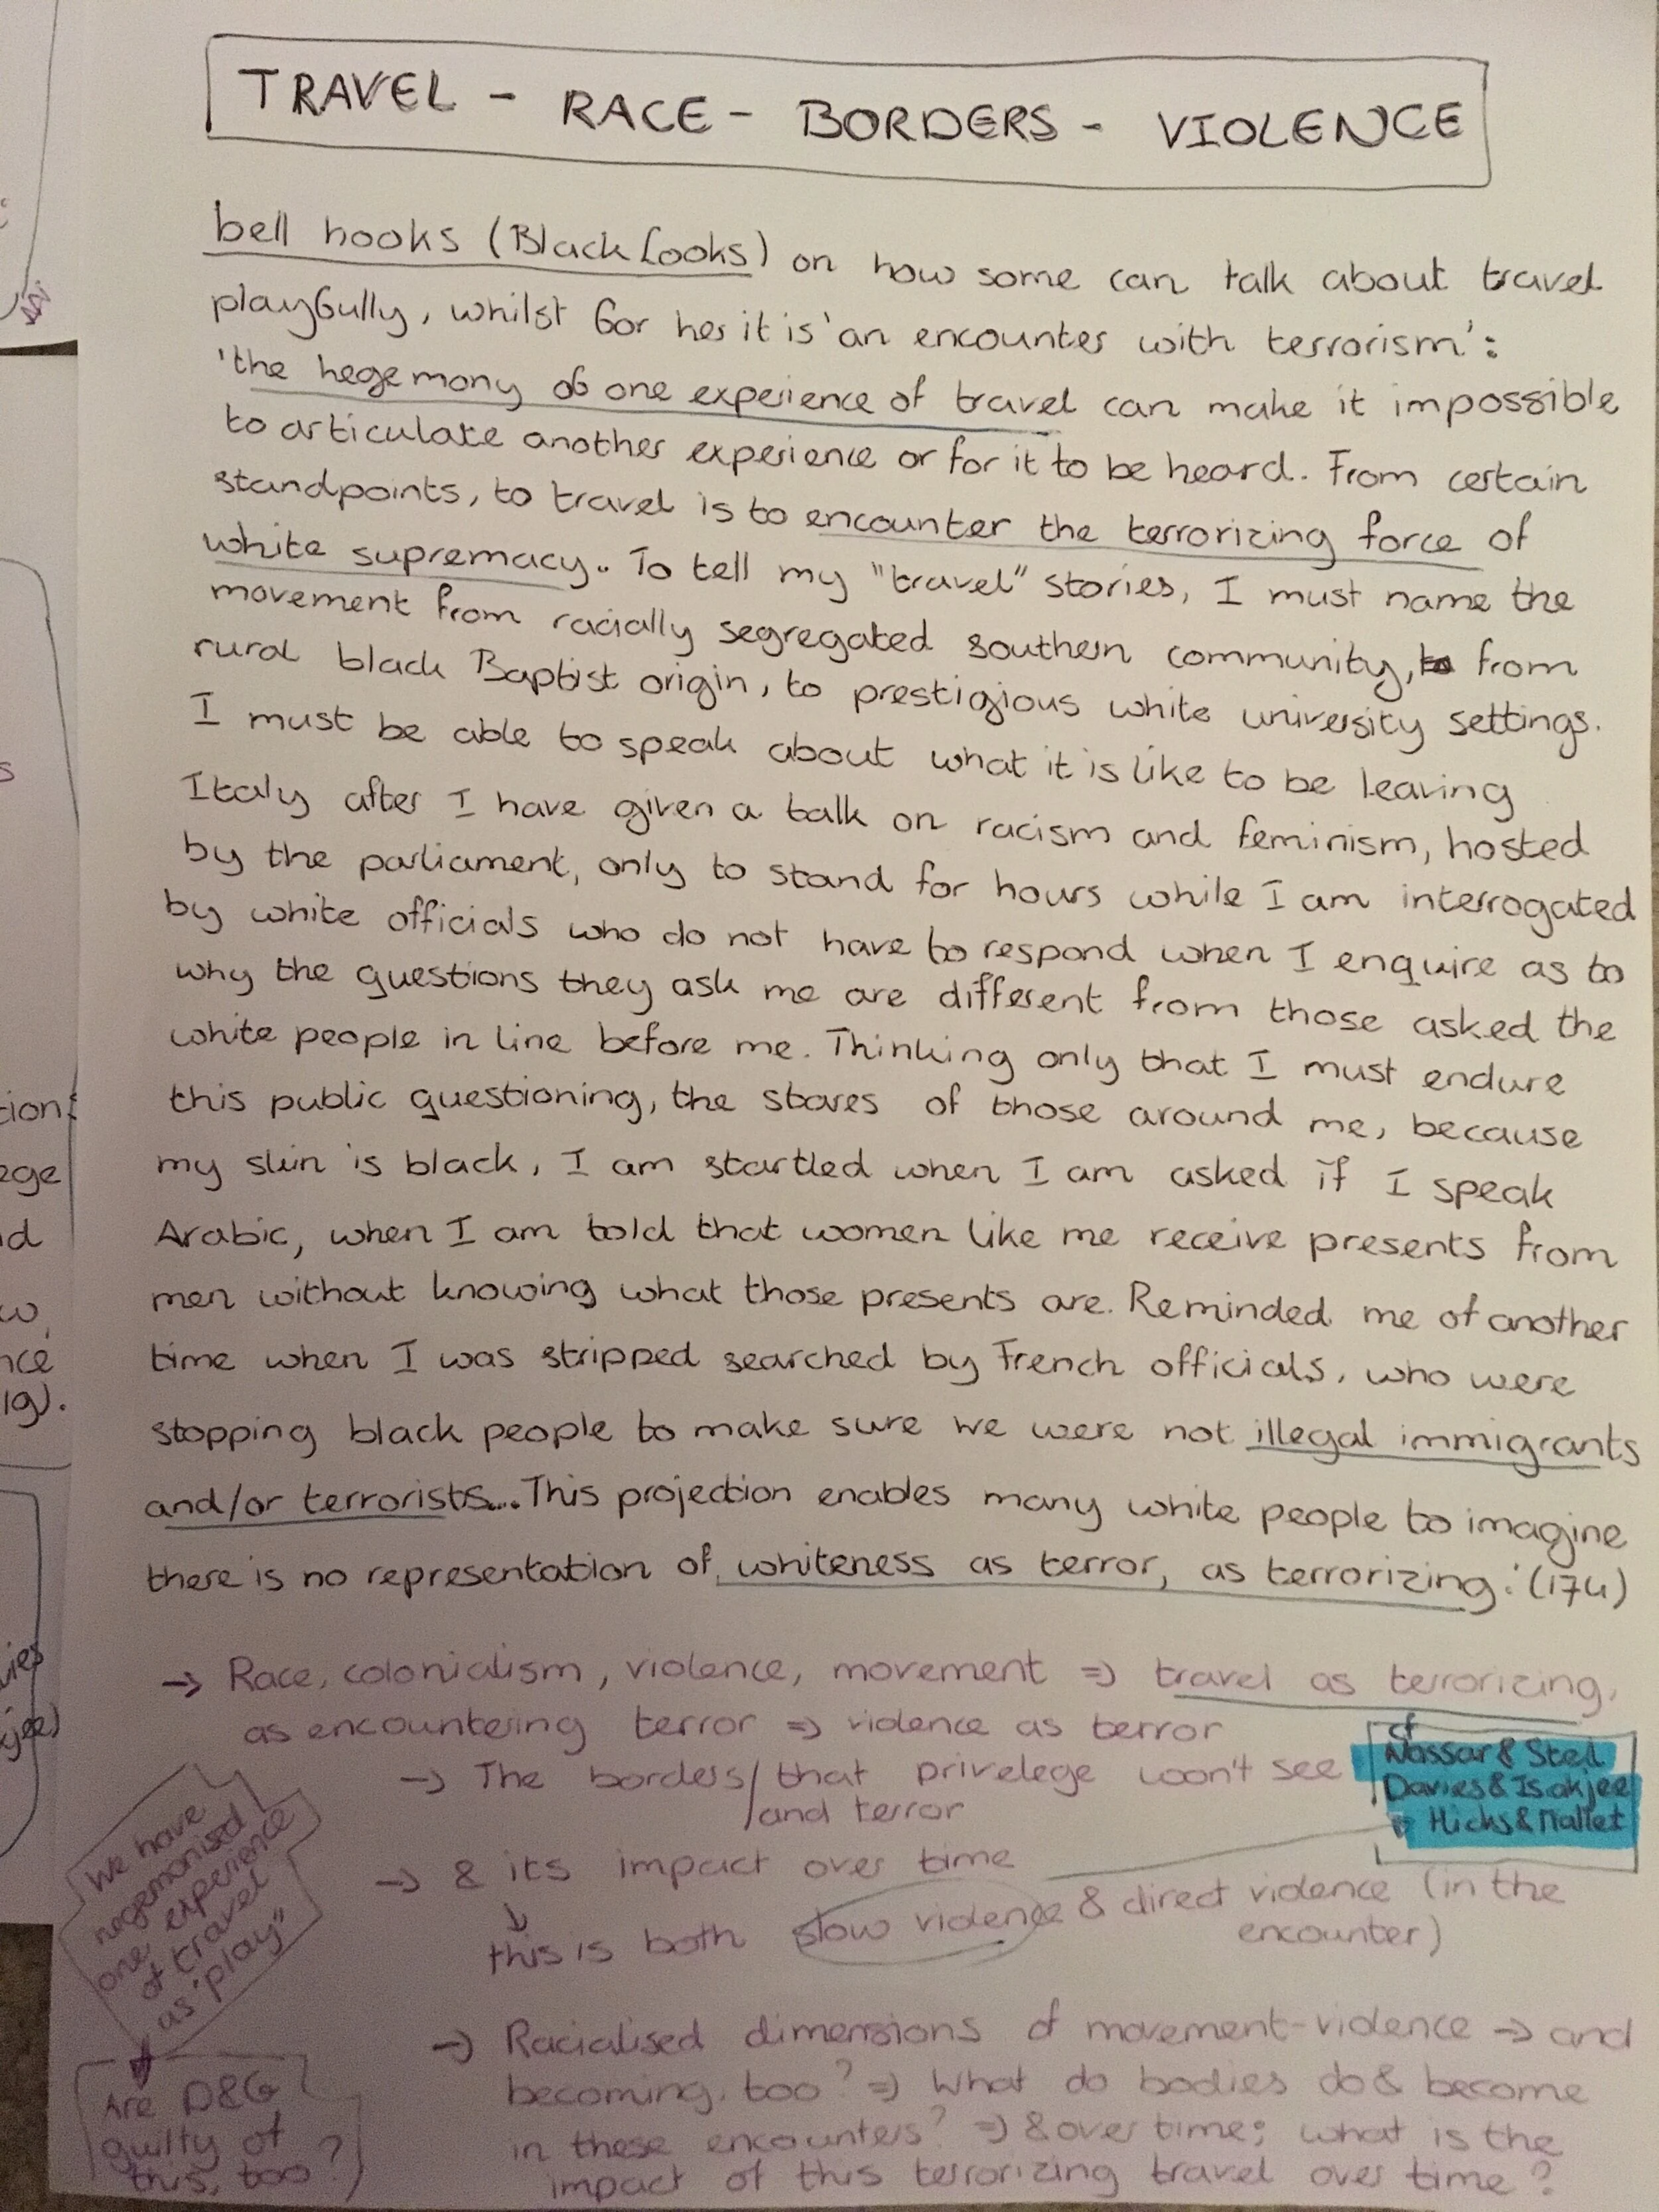 TRAVEL - RACE - BORDERS - VIOLENCE
bell hooks (Black Looks) on how some can talk about travel
playfully, whilst for her it is 'an encounter with terrorism':
'the hegemony of one experience of travel can make it impossible
to articulate another experience or for it to be heard. From certain
standpoints, to travel is to encounter the terrorizing force of
white supremacy. To tell my "travel" stories, I must name the
movement from racially segregated southern community, from
rural black Baptist origin, to prestigious white university settings.
I must be able to speak about what it is like to be leaving
Italy after I have given a talk on racism and feminism, hosted
by the parliament, only to stand for hours while I am interrogated
by white officials who do not have to respond when I enquire as to
why the questions they ask me are different from those asked the
white people in line before me. Thinking only that I must endure
this public questioning, the stares of those around me, because
my skin is black, I am startled when I am asked if I speak
Arabic, when I am told that women like me receive presents from
men without knowing what those presents are. Reminded me of another
time when I was stripped searched by French officials, who were
stopping black people to make sure we were not illegal immigrants
and/or terrorists... This projection enables many white people to imagine
there is no representation of whiteness as terror, as terrorizing.' (174)
→ Race, colonialism, violence, movement ⇒ travel as terrorizing,
as encountering terror ⇒ violence as terror
→ The borders / that privelege won't see
/ and terror
cf
Nassar & Stel
Davies & Isakjee
Hicks & Mallet
→ & its impact over time
↓
this is both slow violence & direct violence (in the
encounter)
We have
hegemonised
one experience
of travel
as "play"
Are D&G
guilty of
this, too?
→ Racialised dimensions of movement-violence → and
becoming, too? ⇒ What do bodies do & become
in these encounters? ⇒ & over time; what is the
impact of this terrorizing travel over time?